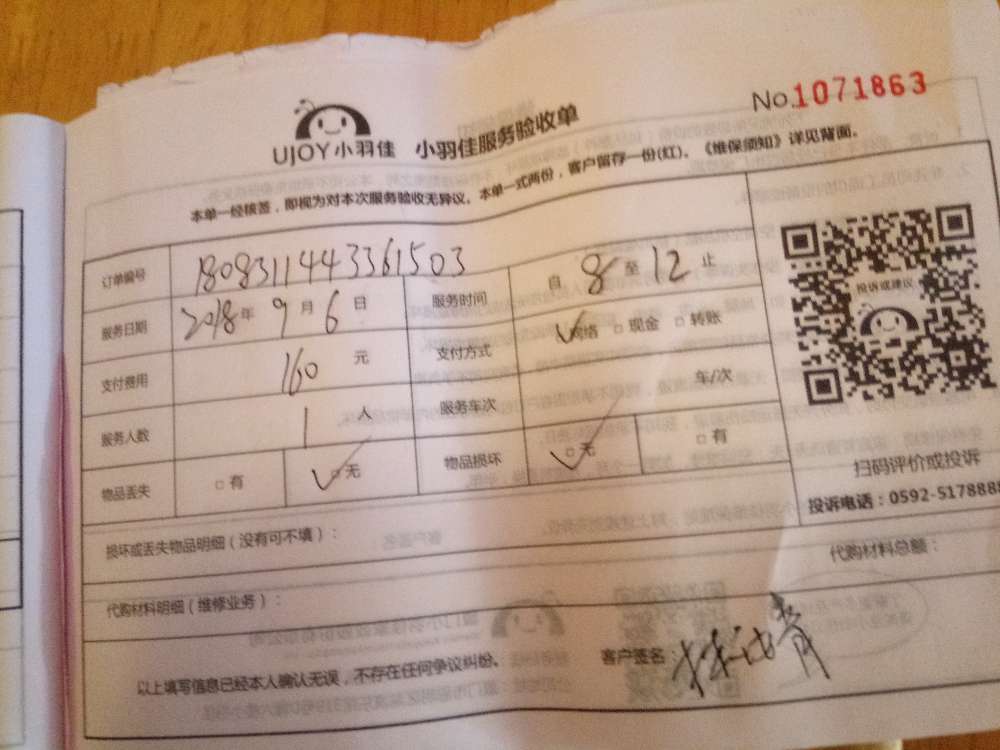 No.1071863
UJOY小羽佳 小羽佳服务验收单
本单一经核签，即视为对本次服务验收无异议。本单一式两份，客户留存一份(红)。《维保须知》详见背面。
订单编号 1808311443361503
服务日期 2018年9月6日 服务时间 自8至12止
支付费用 160元 支付方式 ☑网络 □现金 □转账
服务人数 1人 服务车次 车/次
物品丢失 □有 ☑无 物品损坏 ☑无 □有
投诉或建议
扫码评价或投诉
投诉电话：0592-5178888
损坏或丢失物品明细（没有可不填）：
代购材料明细（维修业务）：
代购材料总额：
以上填写信息已经本人确认无误，不存在任何争议纠纷。
客户签名：